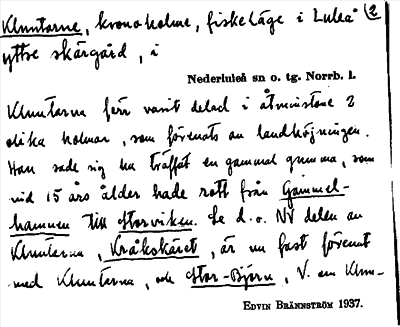 Kluntarne, kronoholme, fiskeläge i Luleå (2
yttre skärgård, i
Nederluleå sn o. tg. Norrb. l.
Kluntarna förr varit delad i åtminstone 2
olika holmar, som förenats av landhöjningen.
Han sade sig ha träffat en gammal gumma, som
vid 15 års ålder hade rott från Gammel-
hamnen till Storviken. Se d. o. NV delen av
Kluntarna, Kråkskäret, är nu fast förenat
med Kluntarna, och Stor-Björn, V. om Klun-
EDVIN BRÄNNSTRÖM 1937.